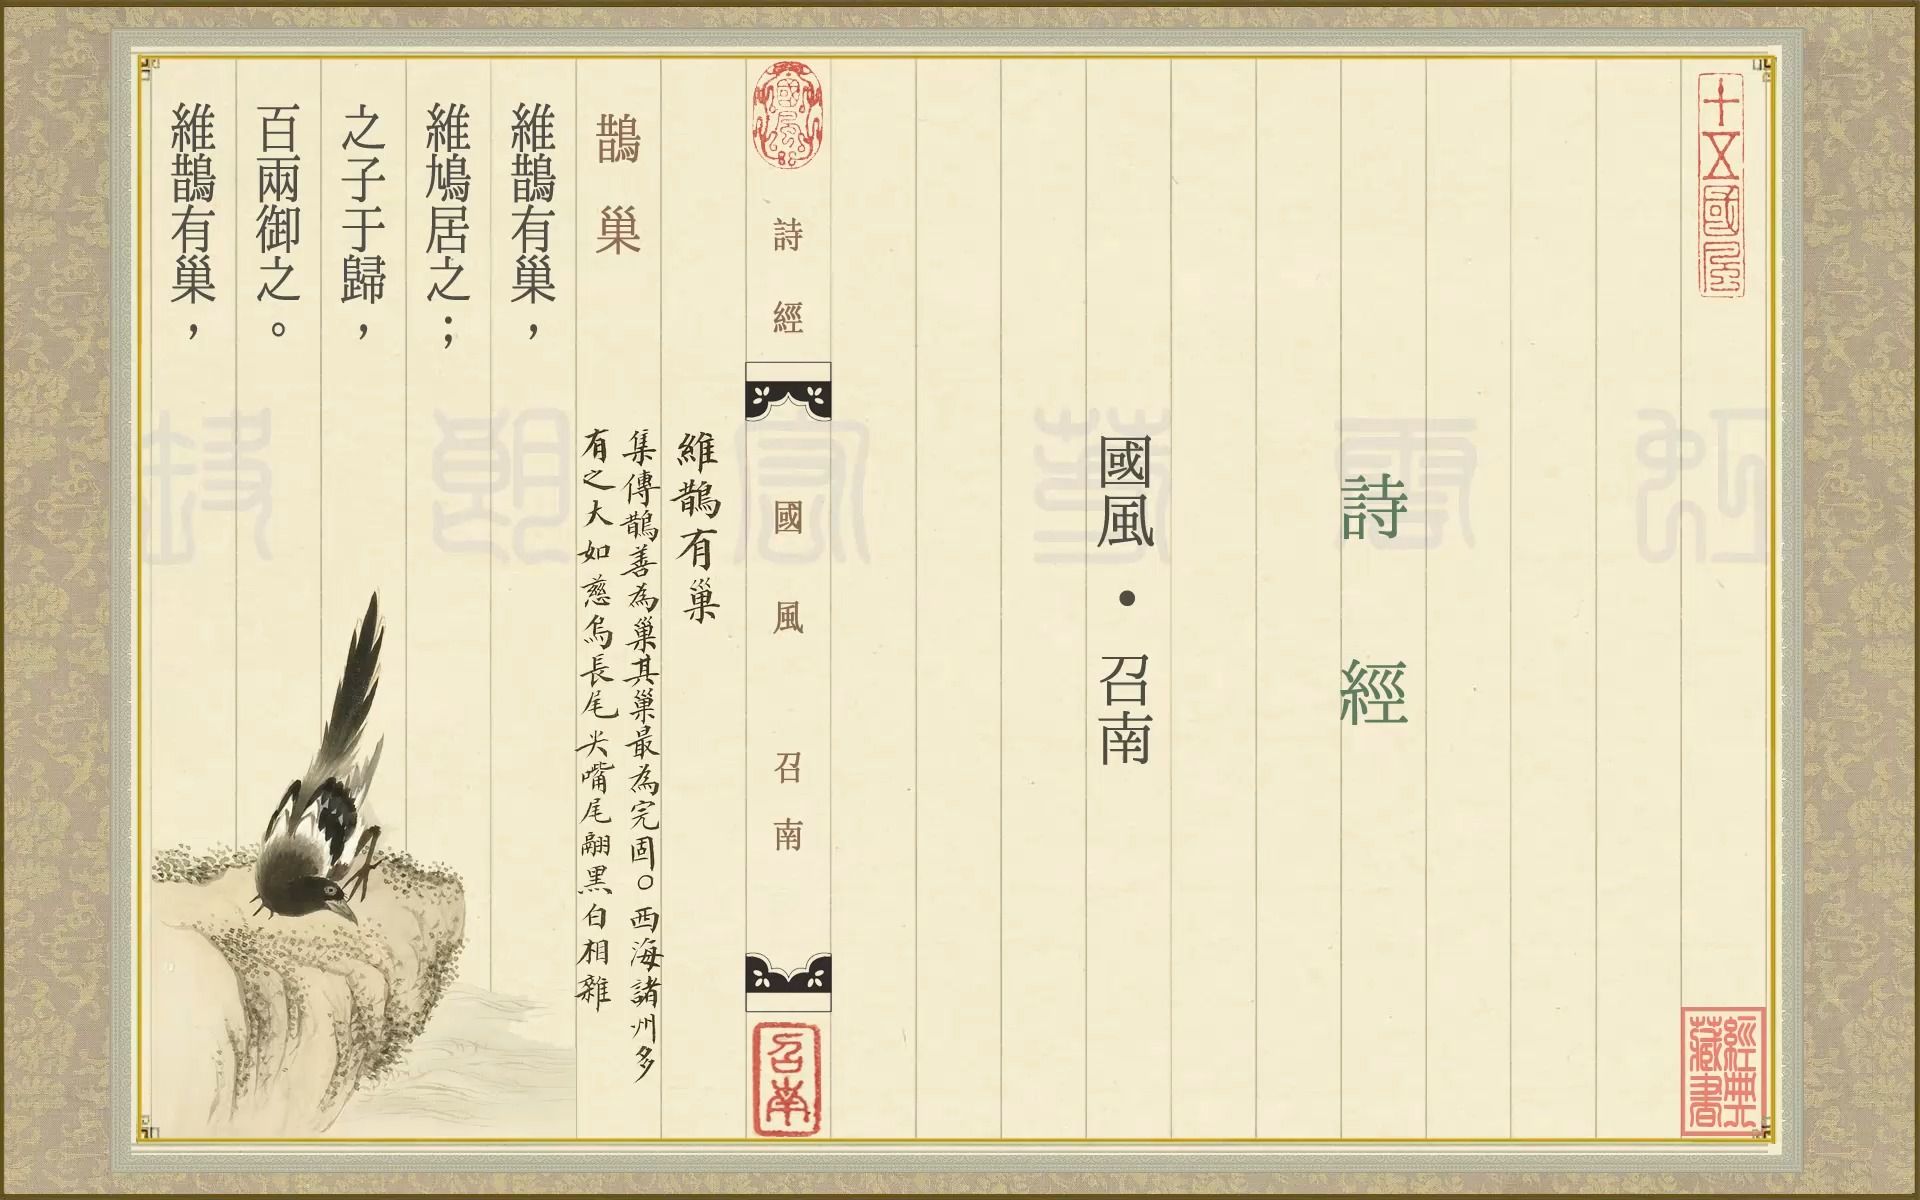 十五國風
經典藏書
詩經
國風・召南
詩經
國風
召南
召南
維鵲有巢
集傳鵲善為巢其巢最為完固。西海諸州多
有之大如慈烏長尾尖嘴尾翮黑白相雜
鵲巢
維鵲有巢，
維鳩居之；
之子于歸，
百兩御之。
維鵲有巢，